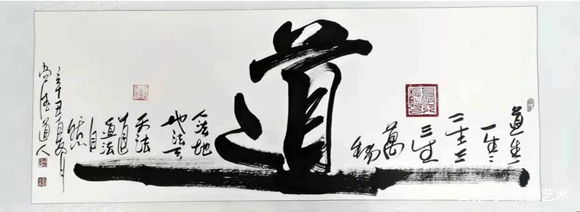 道生一
一生二
二生三
三生
萬
物
道
人法地
地法天
天法
道
道法
自
然
辛丑
道人
艺术